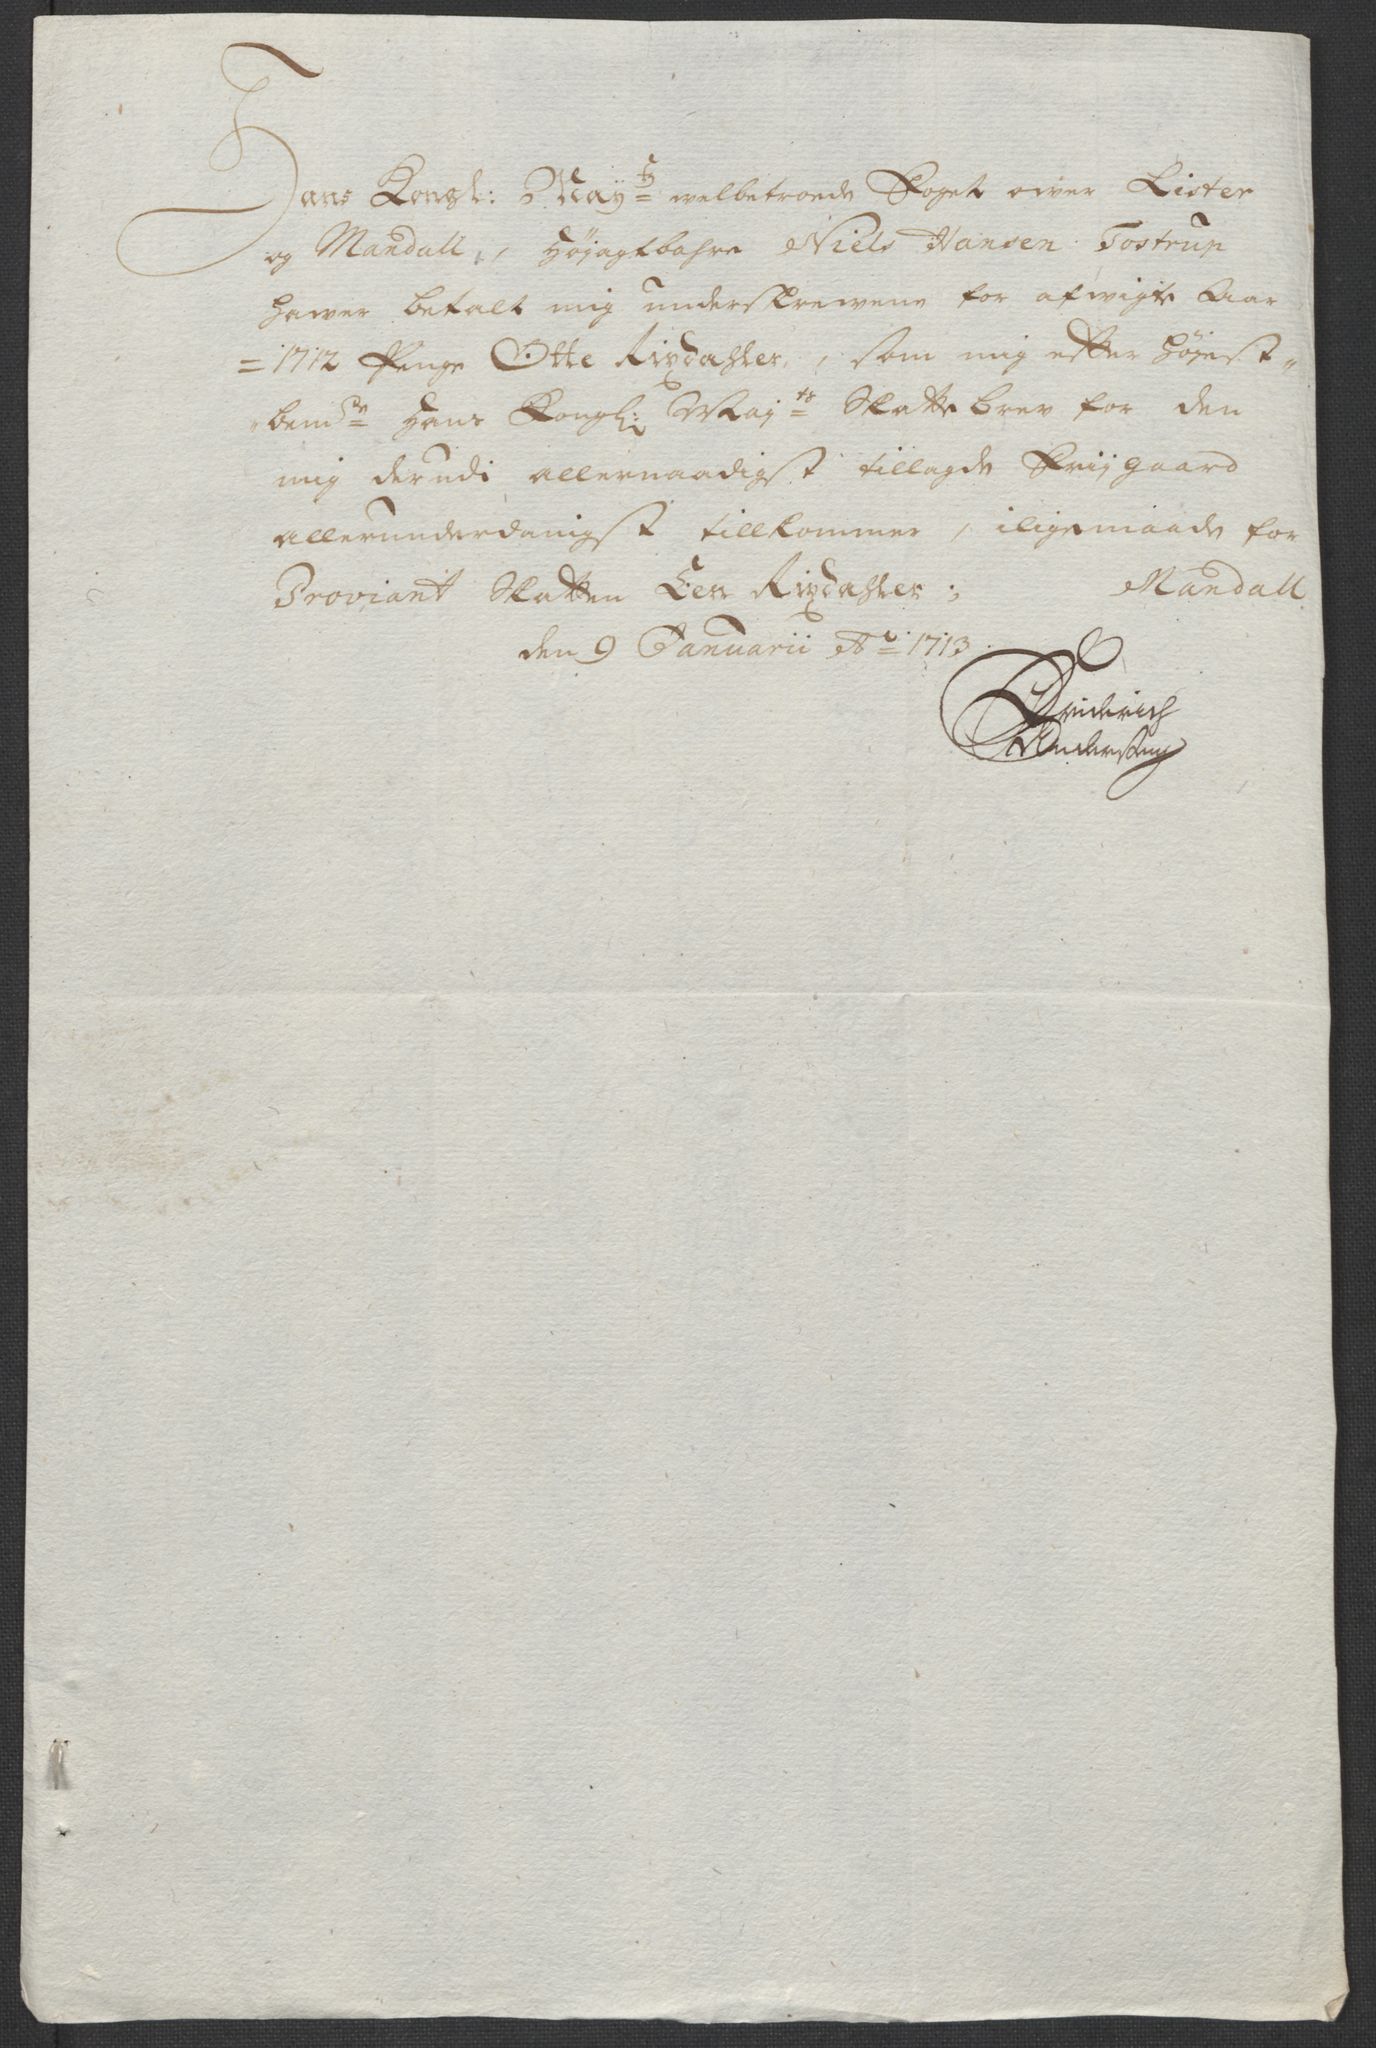 Hans Kongl: Mayts welbetroede Foget ower Lister
og Mandall, Høyagtbahre Niels Hansen Tostrup
hawer betalt mig underskrewene for afwigte Aar
=1712 Penge Otte Rixdahler, som mig efter høyest-
-bemte Hans Kongl: Mayts Skatte brev for den
mig derudi allernaadigst tillagde Frijgaard
allerunderdanigst tillkommer, iligemaade for
Proviant Skatten Een Rixdahler; Mandall
den 9 Januarii Ao 1713.
Friderich
Anderssen